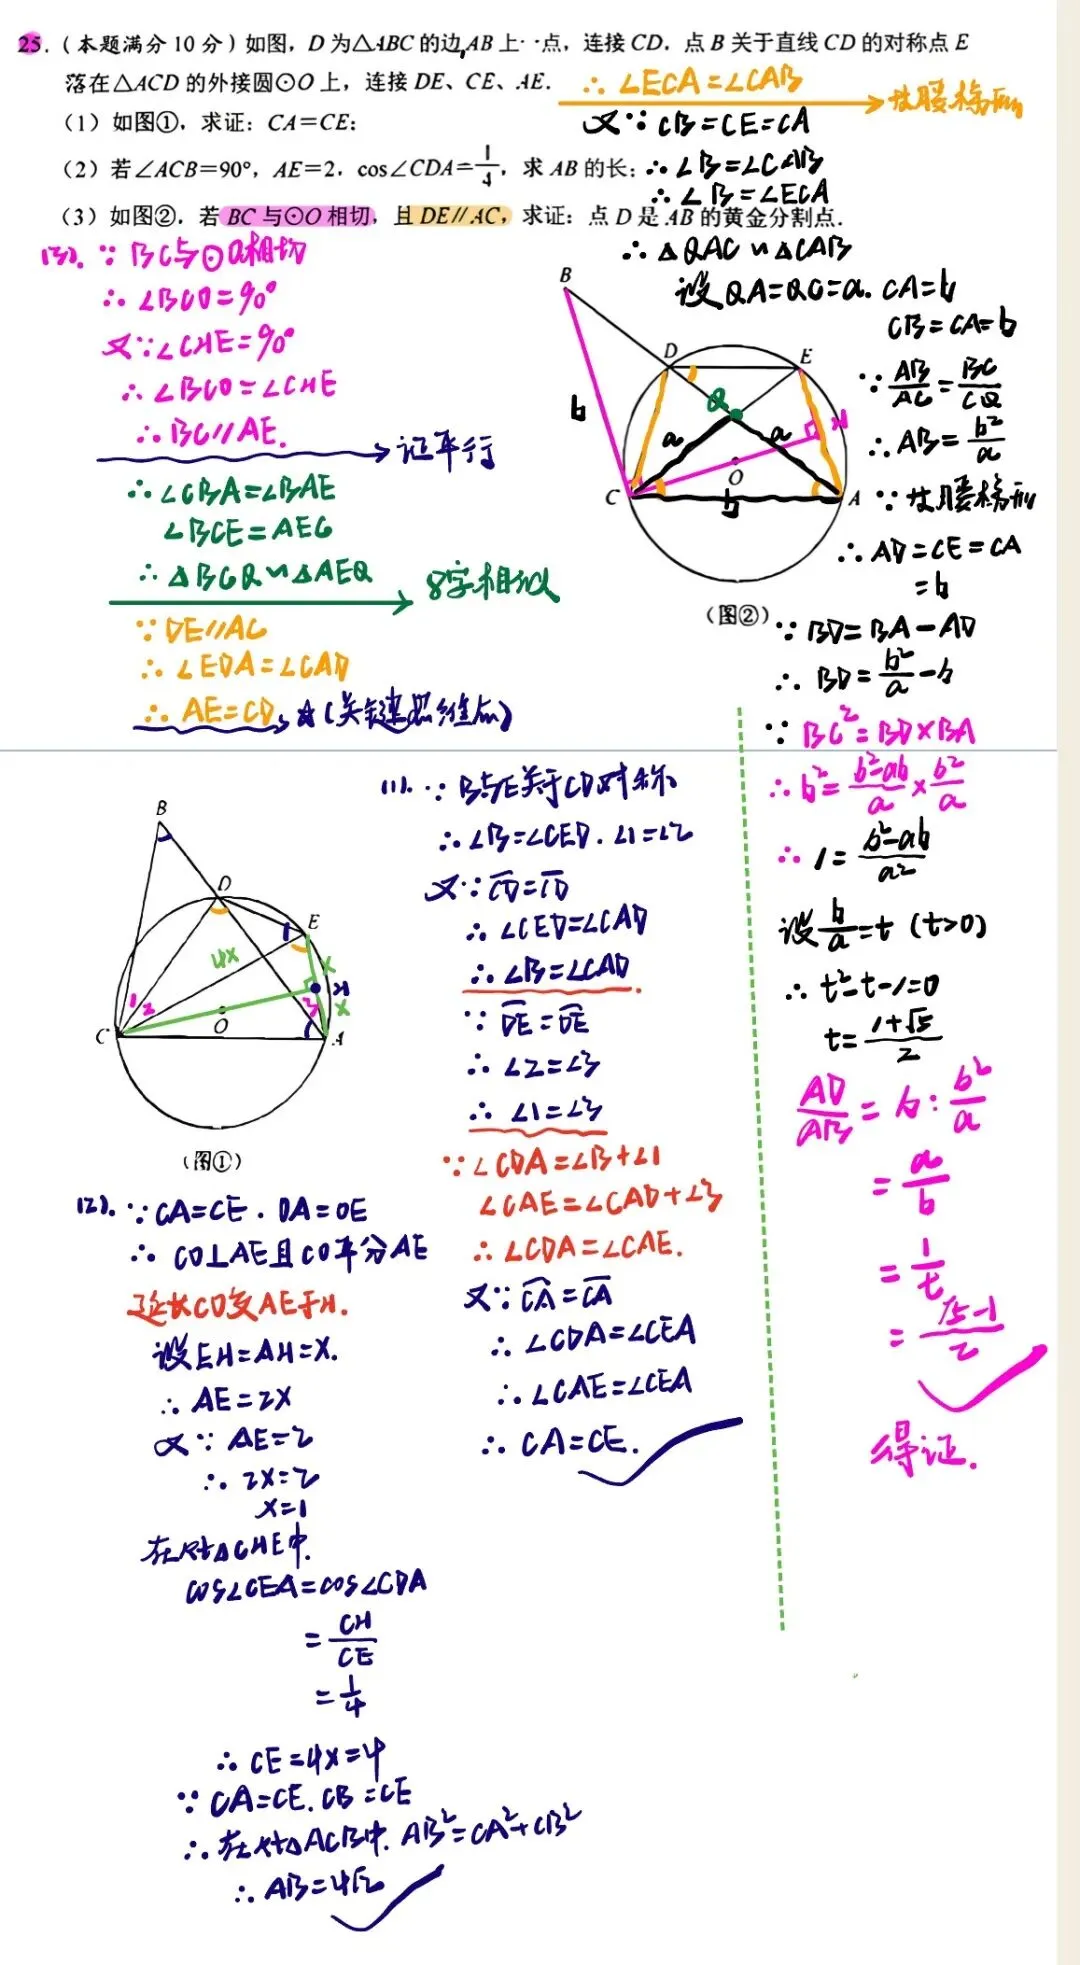 25.(本题满分10分)如图,D为△ABC的边AB上一点,连接CD,点B关于直线CD的对称点E
落在△ACD的外接圆⊙O上,连接DE、CE、AE.
(1)如图①,求证:CA=CE;
(2)若∠ACB=90°,AE=2,cos∠CDA=1/4,求AB的长;
(3)如图②,若BC与⊙O相切,且DE∥AC,求证:点D是AB的黄金分割点.
∴∠ECA=∠CAB
→等腰梯形
又∵CB=CE=CA
∴∠B=∠CAB
∴∠B=∠ECA
∴△QAC∽△CAB
设QA=QC=a. CA=b
CB=CA=b
∵AB/AC=BC/CQ
∴AB=b²/a
∵等腰梯形
∴AD=CE=CA
=b
∵BD=BA-AD
∴BD=b²/a-b
∵BC²=BD×BA
∴b²=(b²-ab)/a×b²/a
∴1=(b²-ab)/a²
设b/a=t(t>0)
∴t²-t-1=0
t=(1+√5)/2
AD/AB=b:b²/a
=a/b
=1/t
=(√5-1)/2
得证.
(3).∵BC与⊙O相切
∴∠BCO=90°
又∵∠CHE=90°
∴∠BCO=∠CHE
∴BC∥AE.
→证平行
∴∠CBA=∠BAE
∠BCE=AEC
∴△BCQ∽△AEQ
→8字相似
∵DE∥AC
∴∠EDA=∠CAD
∴AE=CD,☆(关键思维点)
B
D
E
Q
H
b
a
a
O
C
b
A
(图②)
B
D
E
1
4x
x
H
x
1
2
3
O
C
A
(图①)
(1).∵B与E关于CD对称
∴∠B=∠CED.∠1=∠2
又∵CD=CD
∴∠CED=∠CAD
∴∠B=∠CAD.
∵DE=DE
∴∠2=∠3
∴∠1=∠3
∵∠CDA=∠B+∠1
∠CAE=∠CAD+∠3
∴∠CDA=∠CAE.
又∵CA=CA
∴∠CDA=∠CEA
∴∠CAE=∠CEA
∴CA=CE.
(2).∵CA=CE.OA=OE
∴CO⊥AE且CO平分AE
延长CO交AE于H.
设EH=AH=x.
∴AE=2x
又∵AE=2
∴2x=2
x=1
在Rt△CHE中.
cos∠CEA=cos∠CDA
=CH/CE
=1/4
∴CE=4x=4
∵CA=CE.CB=CE
∴在Rt△ACB中.AB²=CA²+CB²
∴AB=4√2